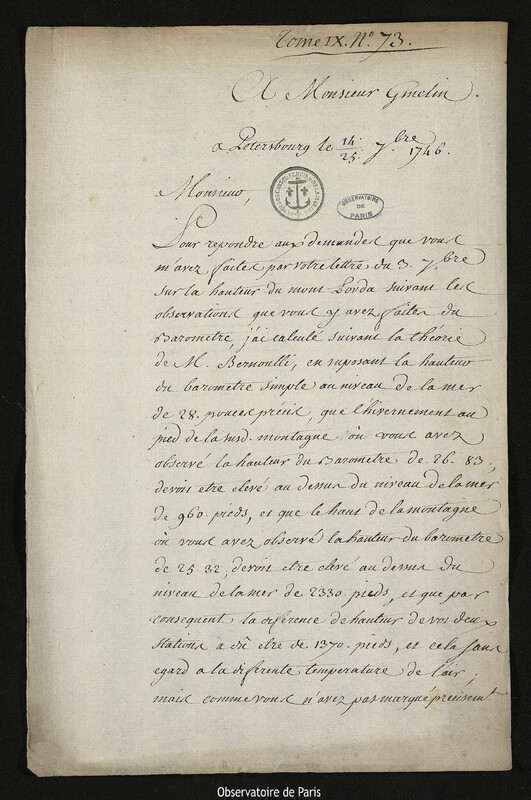 Tome IX. N.° 73.
A Monsieur Gmelin.
a Petersbourg le 14/25 7.bre 1746.
OBSERVATOIRE
DE
PARIS
Monsieur,
Pour repondre aux demandes que vous
m'avez faites par votre lettre du 3. 7.bre
sur la hauteur du mont suivant les
observations que vous y avez faites du
Barometre, j'ai calculé suivant la théorie
de M. Bernoulli, en suposant la hauteur
du barometre simple au niveau de la mer
de 28. pouces précis, que l'hivernement au
pied de la susd. montagne où vous avez
observé la hauteur du Barometre de 26. 83.,
devoit etre elevé au dessus du niveau de la mer
de 960. pieds, et que le haut de la montagne
où vous avez observé la hauteur du barometre
de 25 32, devoit etre elevé au dessus du
niveau de la mer de 2330. pieds, et que par
consequent la diference de hauteur de vos deux
stations a dû etre de 1370. pieds, et cela sans
egard a la diferente temperature de l'air;
mais comme vous n'avez pas marqué précisemt
Observatoire de Paris